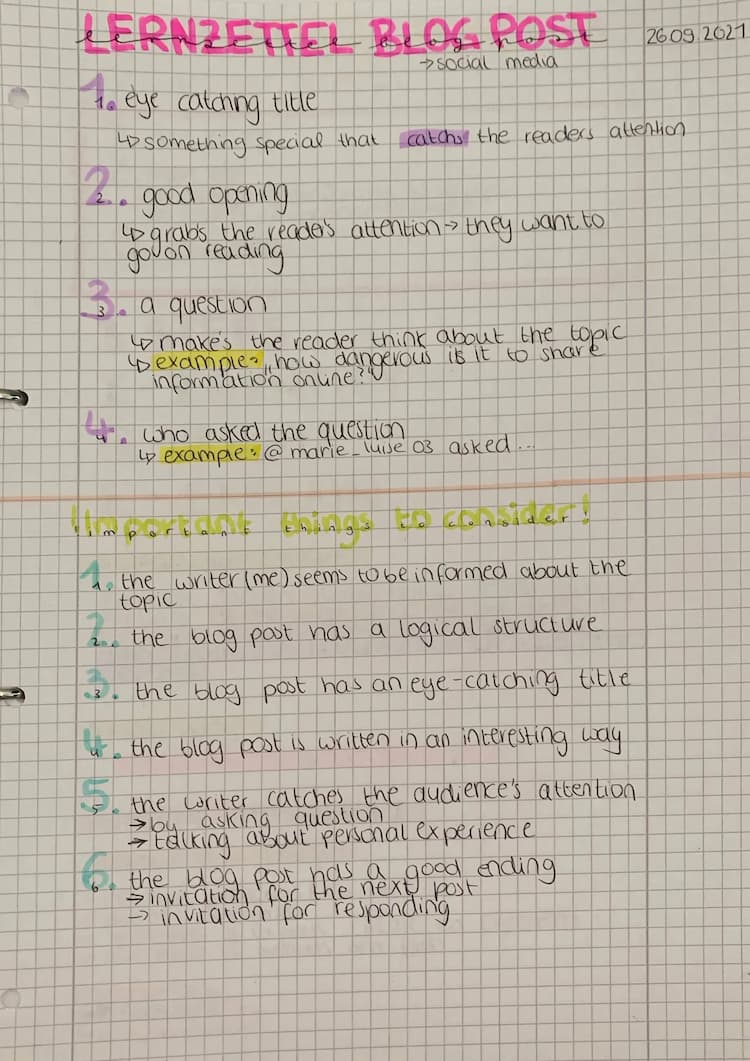 LERNZETTEL BLOG POST 26.09.2021
→social media
1. eye catchng title
↳something special that catchs the readers attention
2. good opening
↳grabs the reader's attention → they want to
go on reading
3. a question
↳ make's the reader think about the topic
↳ example: „how dangerous is it to share
information online?"
4. who asked the question
↳ example: @marie_luise 03 asked...
!Important things to consider!
1. the writer (me) seems to be informed about the
topic
2. the blog post has a logical structure
3. the blog post has an eye-catching title
4. the blog post is written in an interesting way
5. the writer catches the audience's attention
→by asking question
→ talking about personal experience
6. the blog post has a good ending
→ invitation for the next post
→ invitation for responding